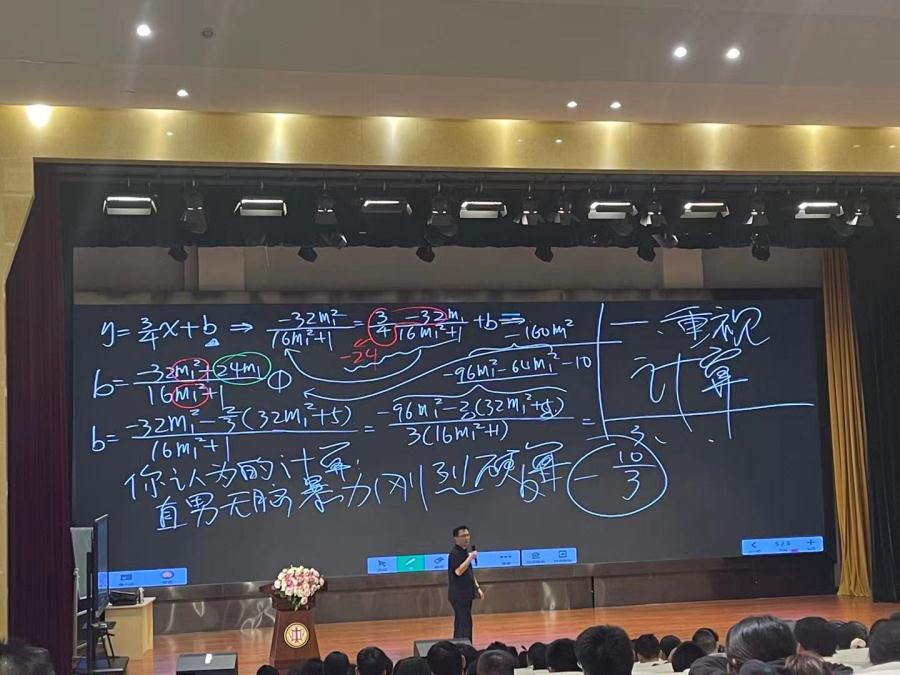 y=¾x+b ⇒ (-32m₁²)/(16m₁²+1) = 3/4 · (-32m₁)/(16m₁²+1) + b ⇒
-24
-160m²
一、重视
计算
b = (-32m₁²+24m₁)/(16m₁²+1)
-96m₁²-64m₁²-10
b = (-32m₁²-⅔(32m₁²+5))/(16m₁²+1) = (-96m₁²-2(32m₁²+5))/(3(16m₁²+1)) =
你认为的计算:
直男无脑暴力刚烈硬算
-10/3